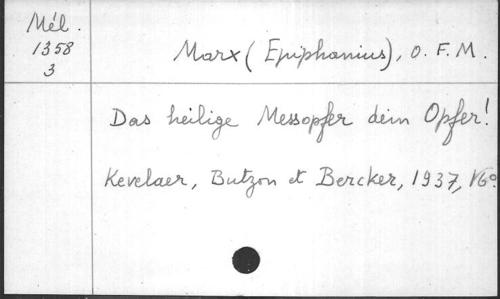 Mél.
1358
3
Marx (Epiphanius), O.F.M.
Das heilige Messopfer dein Opfer!
Kevelaer, Butzon et Bercker, 1937, 16º.